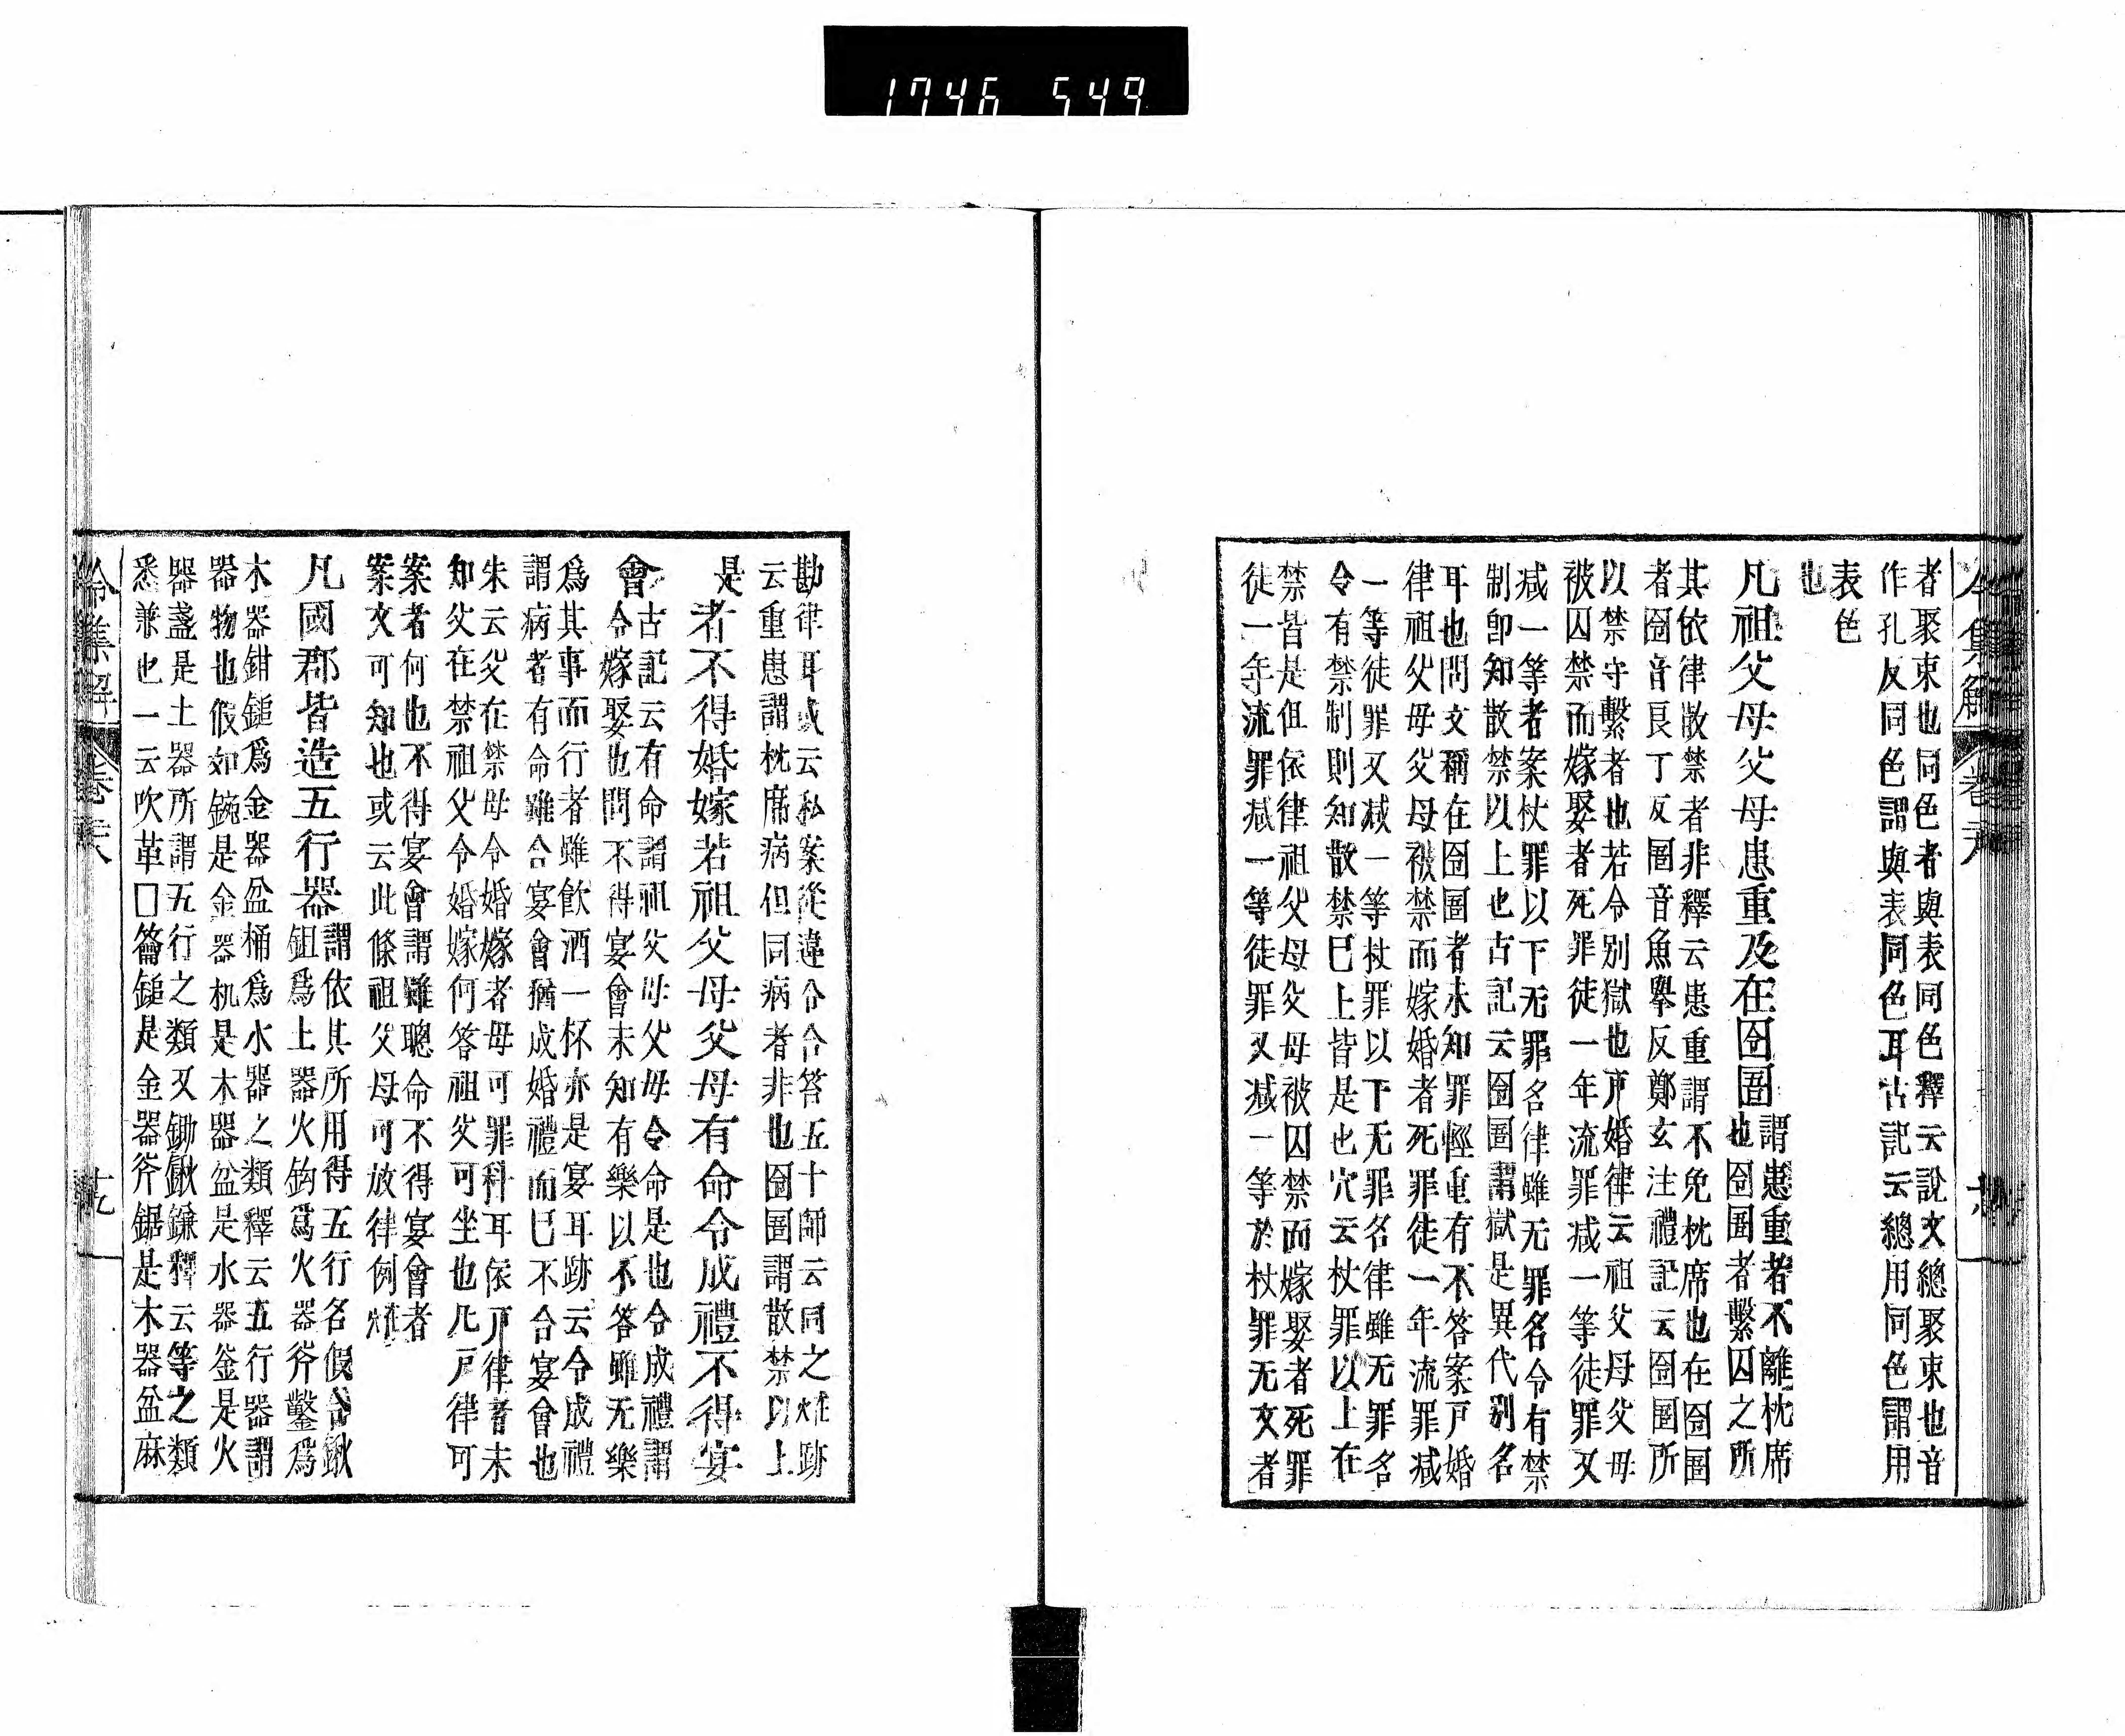 1746 549
者聚束也同色者與表同色釋云說文總聚束也音
作孔反同色謂與表同色耳古記云總用同色謂用
表色
也
凡祖父母父母患重及在囹圄
謂患重者不離枕席
也囹圄者繫囚之所
其依律散禁者非釋云患重謂不免枕席也在囹圄
者囹音艮丁反圄音魚擧反鄭玄注禮記云囹圄所
以禁守繫者也若令別獄也戸婚律云祖父母父母
被囚禁而嫁娶者死罪徒一年流罪减一等徒罪又
减一等者案杖罪以下无罪名律雖无罪名令有禁
制卽知散禁以上也古記云囹圄謂獄是異代別名
耳也問文稱在囹圄者未知罪輕重有不答案戸婚
律祖父母父母被禁而嫁婚者死罪徒一年流罪减
一等徒罪又减一等杖罪以下无罪名律雖无罪名
令有禁制則知散禁已上皆是也穴云杖罪以上在
禁皆是但依律祖父母父母被囚禁而嫁娶者死罪
徒一年流罪减一等徒罪又减一等於杖罪无文者
勘律耳或云私案從違令合答五十師云同之難跡
云重患謂枕席病但同病者非也囹圄謂散禁以上
是
者不得婚嫁若祖父母父母有命令成禮不得宴
會
古記云有命謂祖父母父母令命是也令成禮謂
令嫁娶也問不得宴會未知有樂以不答雖无樂
爲其事而行者雖飮酒一杯亦是宴耳跡云令成禮
謂病者有命雖合宴會猶成婚禮而已不合宴會也
朱云父在禁母令婚嫁者母可罪科耳依戸律者未
知父在禁祖父令婚嫁何答祖父可坐也凡戸律可
案者何也不得宴會謂雖聽命不得宴會者
案文可知也或云此條祖父母可放律例煩
凡國郡皆造五行器
謂依其所用得五行名假令鍬
鉏爲土器火鈎爲火器斧鑿爲
木器鉗鎚爲金器盆桶爲水器之類釋云五行器謂
器物也假如鋺是金器机是木器盆是水器釜是火
器盞是土器所謂五行之類又鋤鍬鎌釋云等之類
悉兼也一云吹革□籥鎚是金器斧鋸是木器盆麻
令集解 卷六